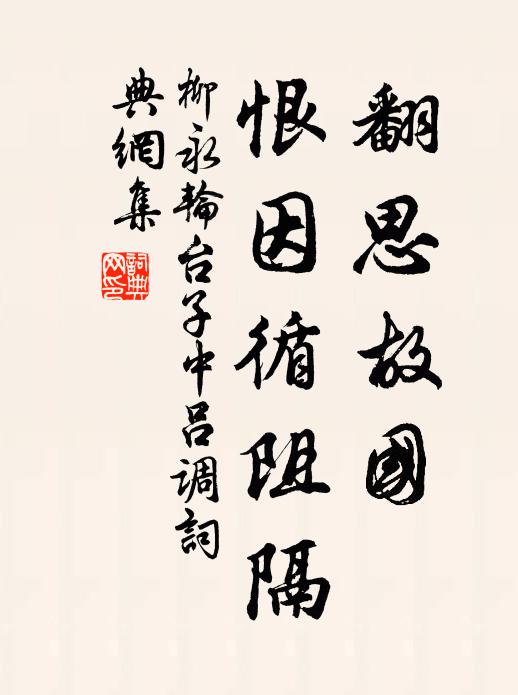 翻思故國
恨因循阻隔
柳永輪台子中呂調詞
典網集
詞典网印